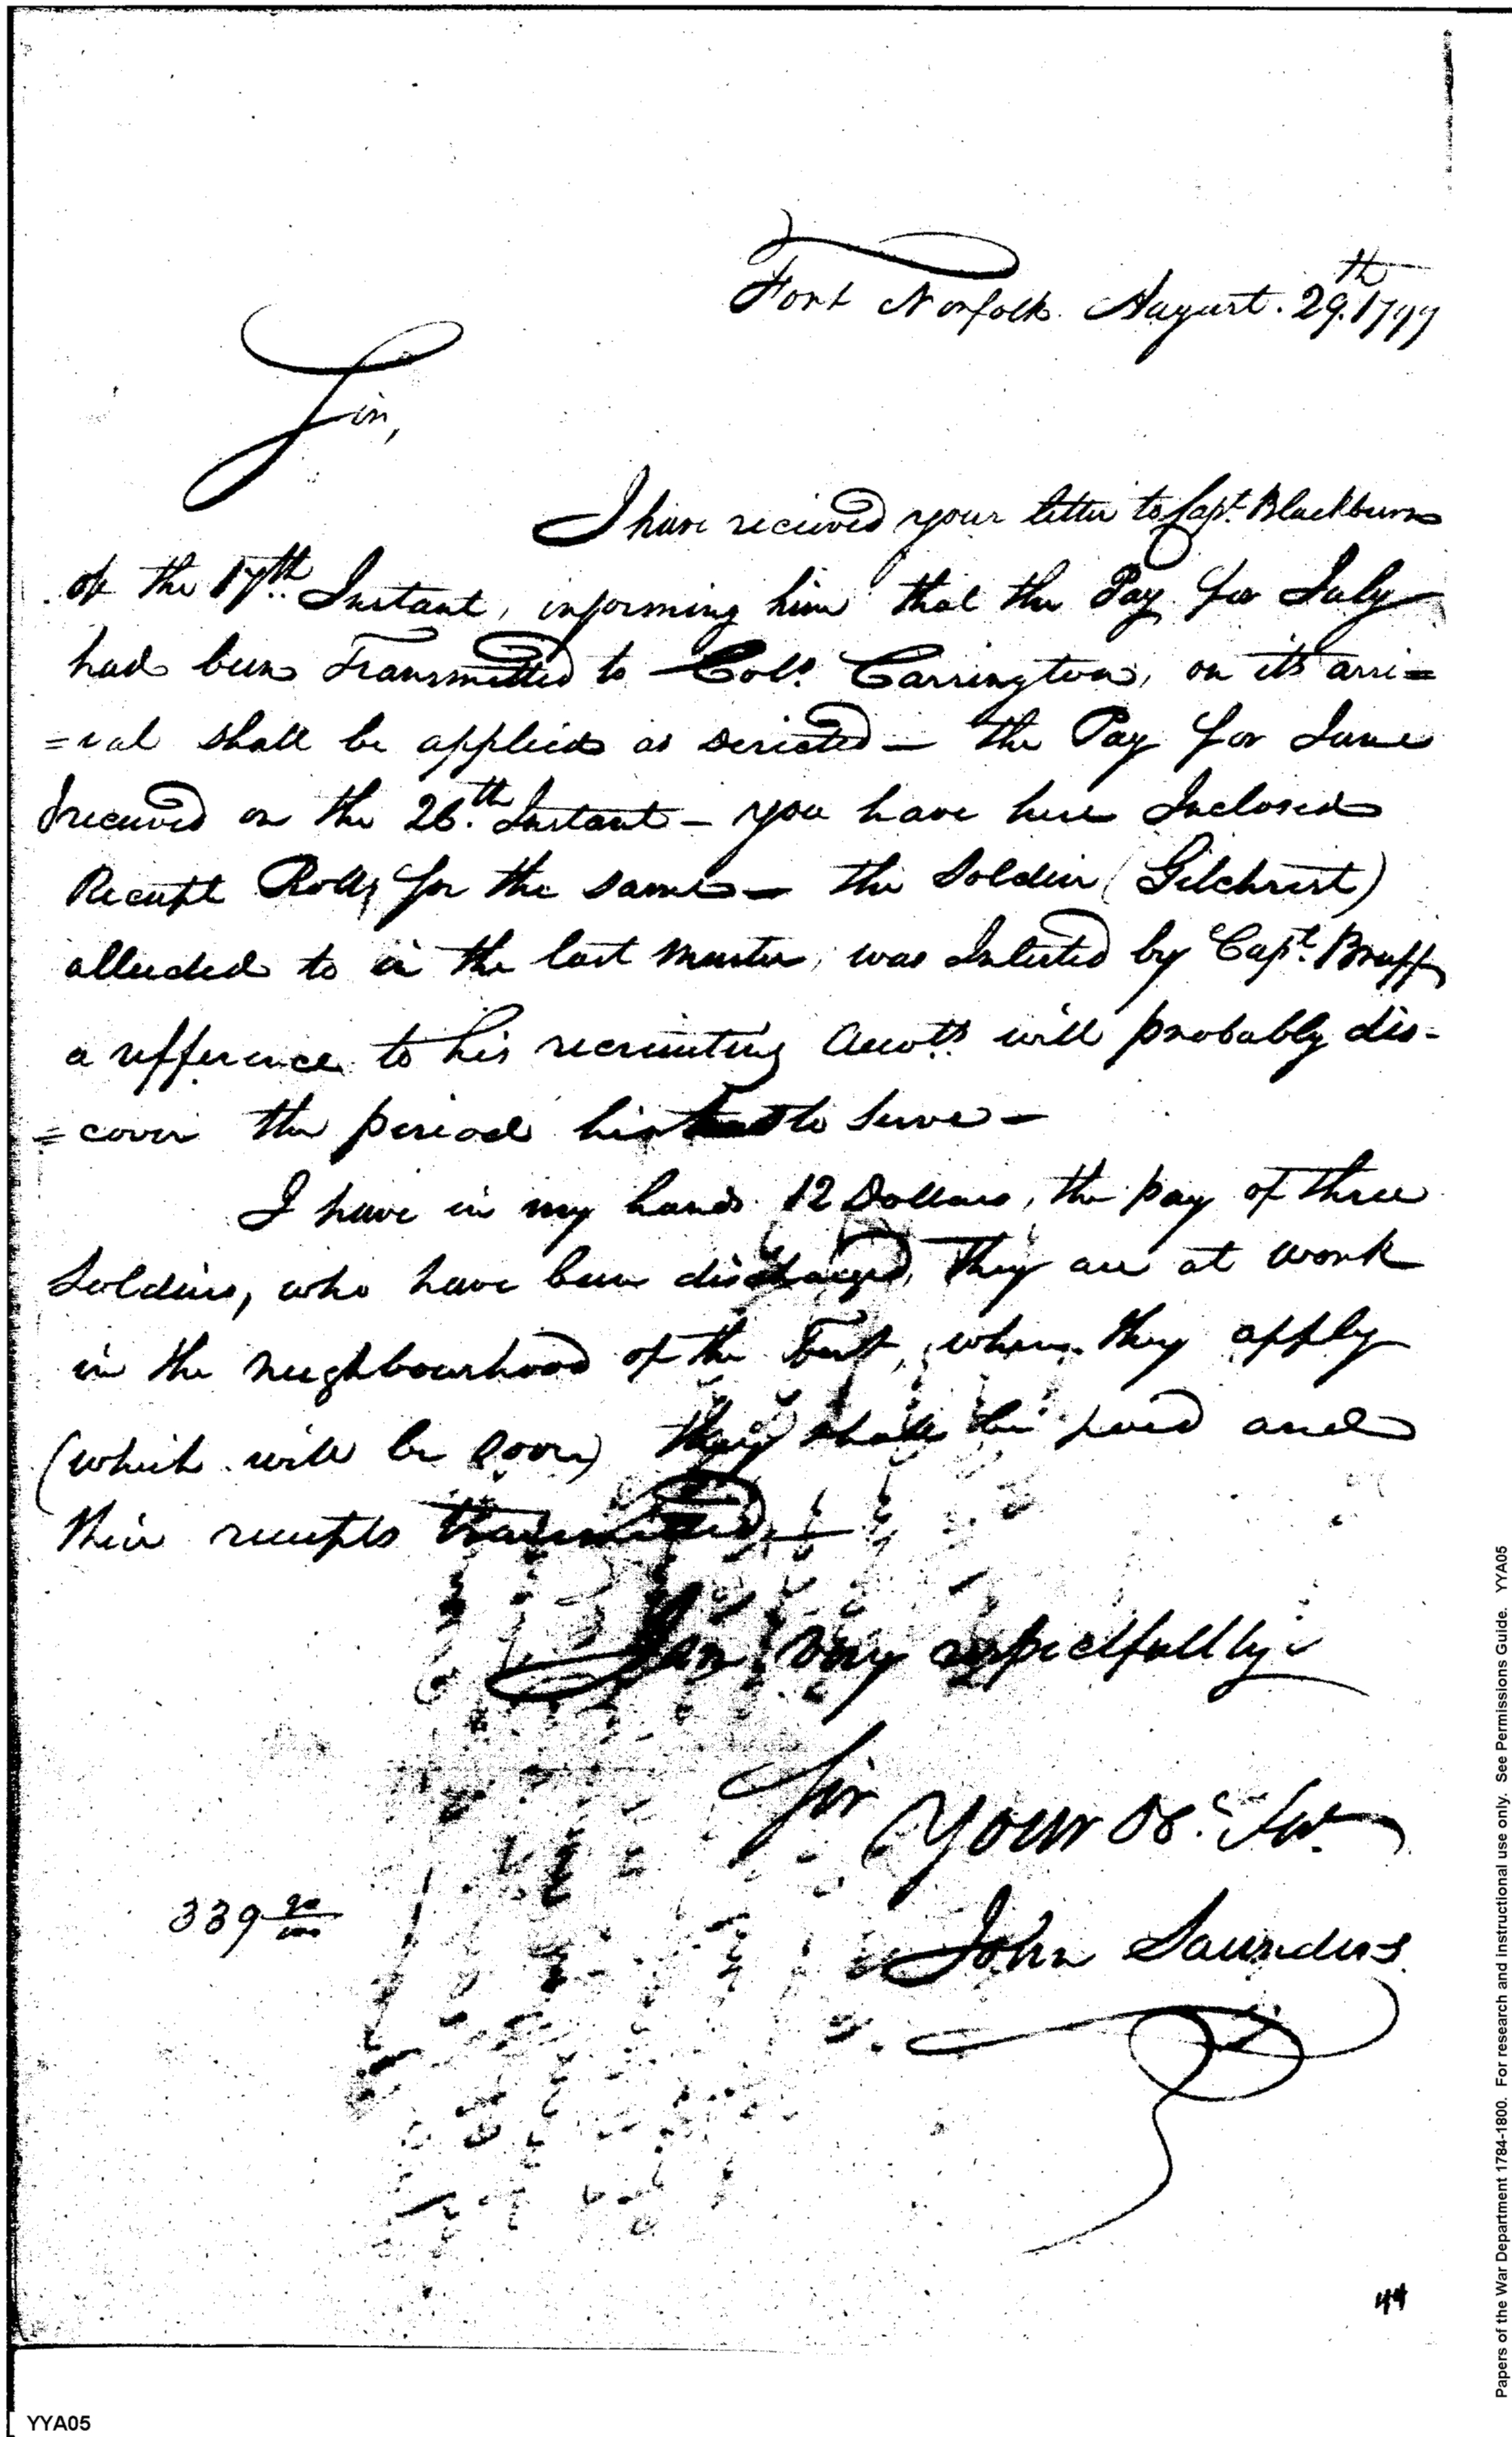 Fort Norfolk. August. 29th. 1799
Sir,
I have recieved your letter to Capt. Blackburn
of the 17th. Instant, informing him that the Pay for July
had been Transmitted to Colo. Carrington, on its arri=
=val shall be applied as directed — the Pay for June
I received on the 26.th Instant — you have here Inclosed
Receipt Rolls for the same — the Soldier (Gilchrist)
alluded to in the last muster, was Inlisted by Capt. Bruff
a refference to his recruiting Accotts. will probably dis-
=cover the period he to Serve —
I have in my hands 12 Dollars, the pay of three
Soldiers, who have been discharged, They are at work
in the neighbourhood of the Fort, when they apply
(which will be soon) they shall be paid and
their receipts transmitted —
I am very respectfully
Sir
Your Ob. Sr.
John Saunders
339 90/100
44
YYA05
Papers of the War Department 1784-1800. For research and instructional use only. See Permissions Guide. YYA05